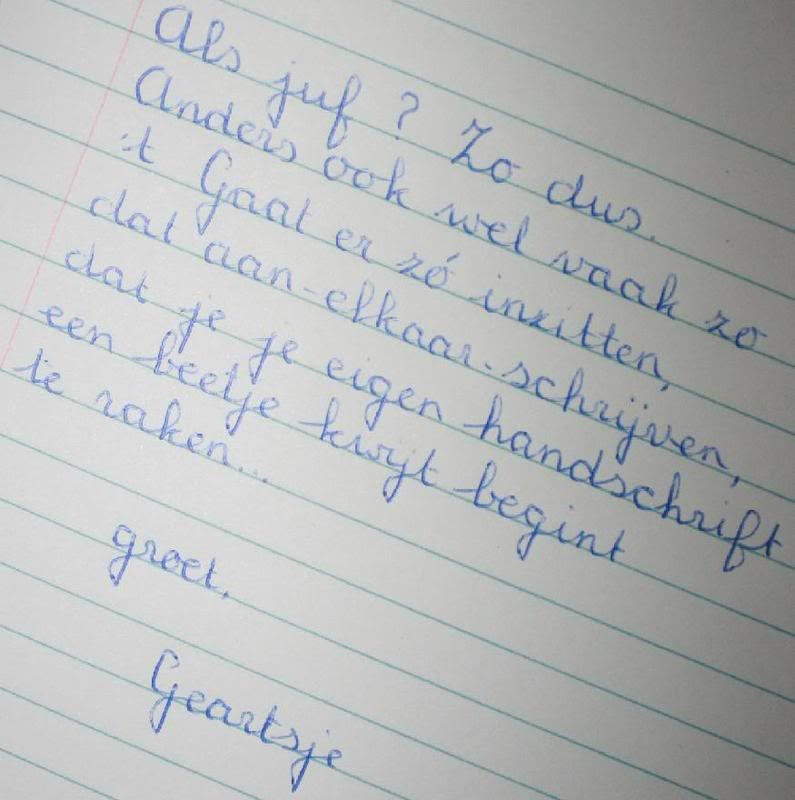 Als juf? Zo dus.
Anders ook wel vaak zo
't Gaat er zó inzitten,
dat aan-elkaar-schrijven,
dat je je eigen handschrift
een beetje kwijt begint
te raken...
groet,
Geartsje